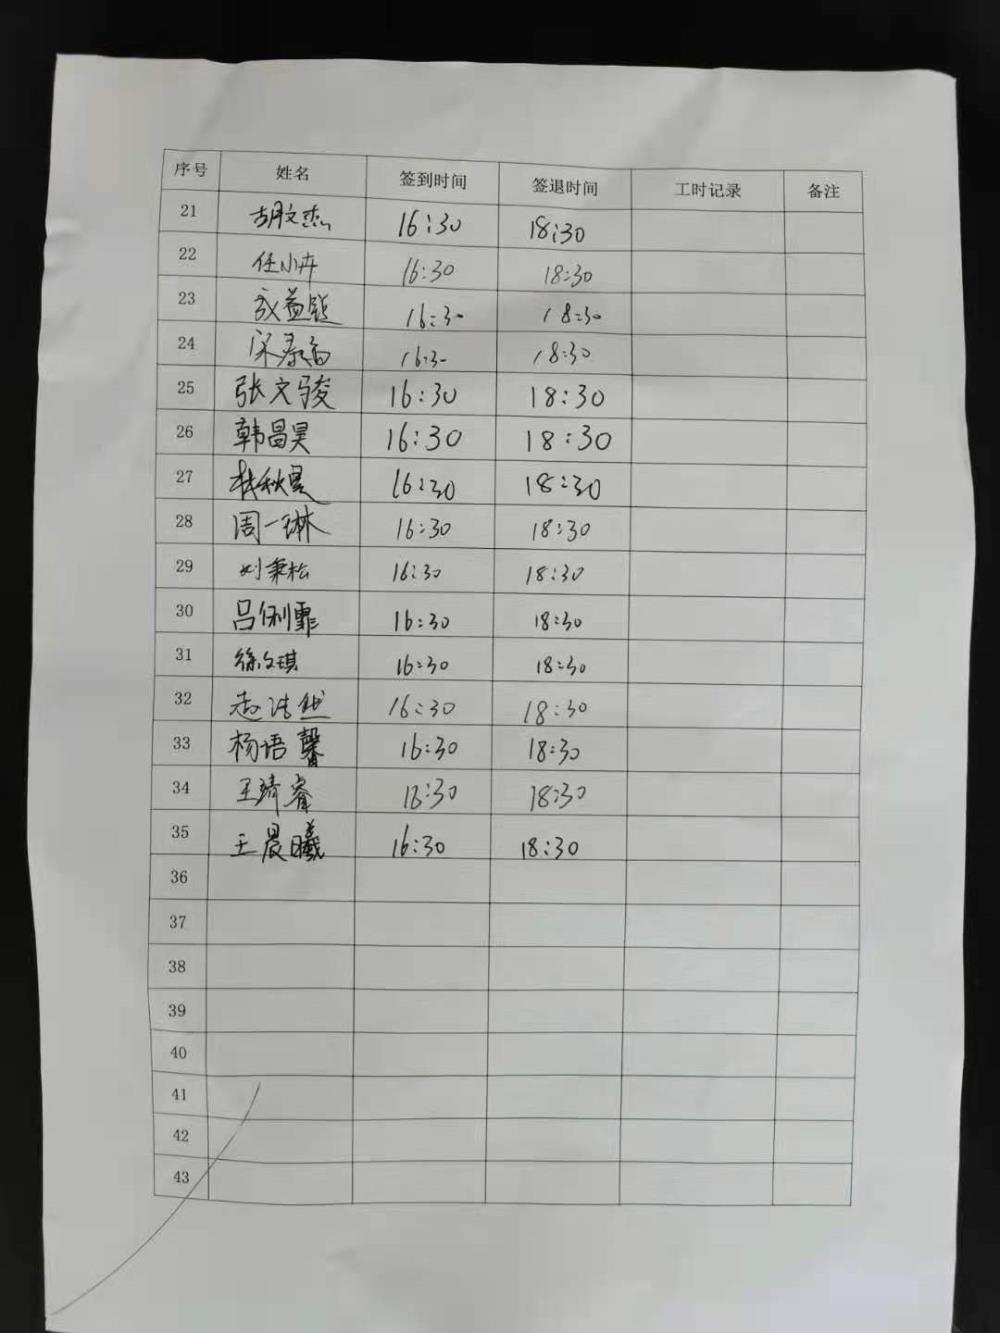 序号 姓名 签到时间 签退时间 工时记录 备注
21 胡文杰 16:30 18:30
22 任小卉 16:30 18:30
23 16:30 18:30
24 16:30 18:30
25 张文骏 16:30 18:30
26 韩昌昊 16:30 18:30
27 16:30 18:30
28 周一琳 16:30 18:30
29 刘秉松 16:30 18:30
30 吕俐霏 16:30 18:30
31 徐文琪 16:30 18:30
32 赵浩然 16:30 18:30
33 杨语馨 16:30 18:30
34 王琦睿 18:30
35 王晨曦 16:30 18:30
36
37
38
39
40
41
42
43